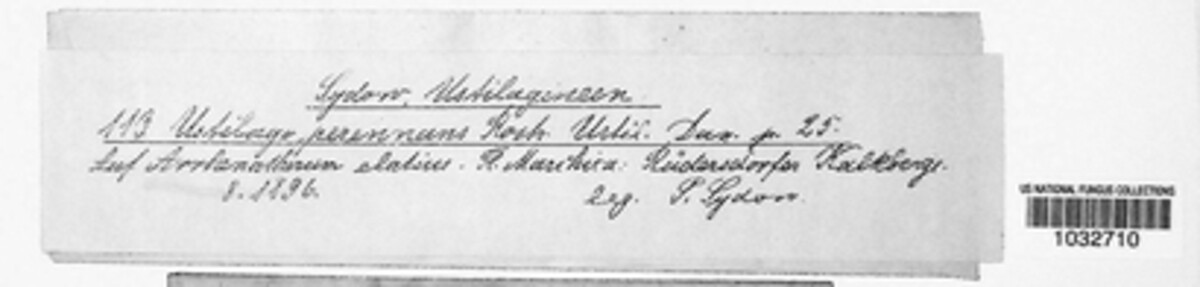 Sydow, Ustilagineen
113 Ustilago perennans Rostr. Ustil. Dan. p. 25.
Auf Arrhenatherum elatius. Marchica: Rüdersdorfer Kalkberge.
8. 1896.
Leg. P. Sydow.
US NATIONAL FUNGUS COLLECTIONS
1032710